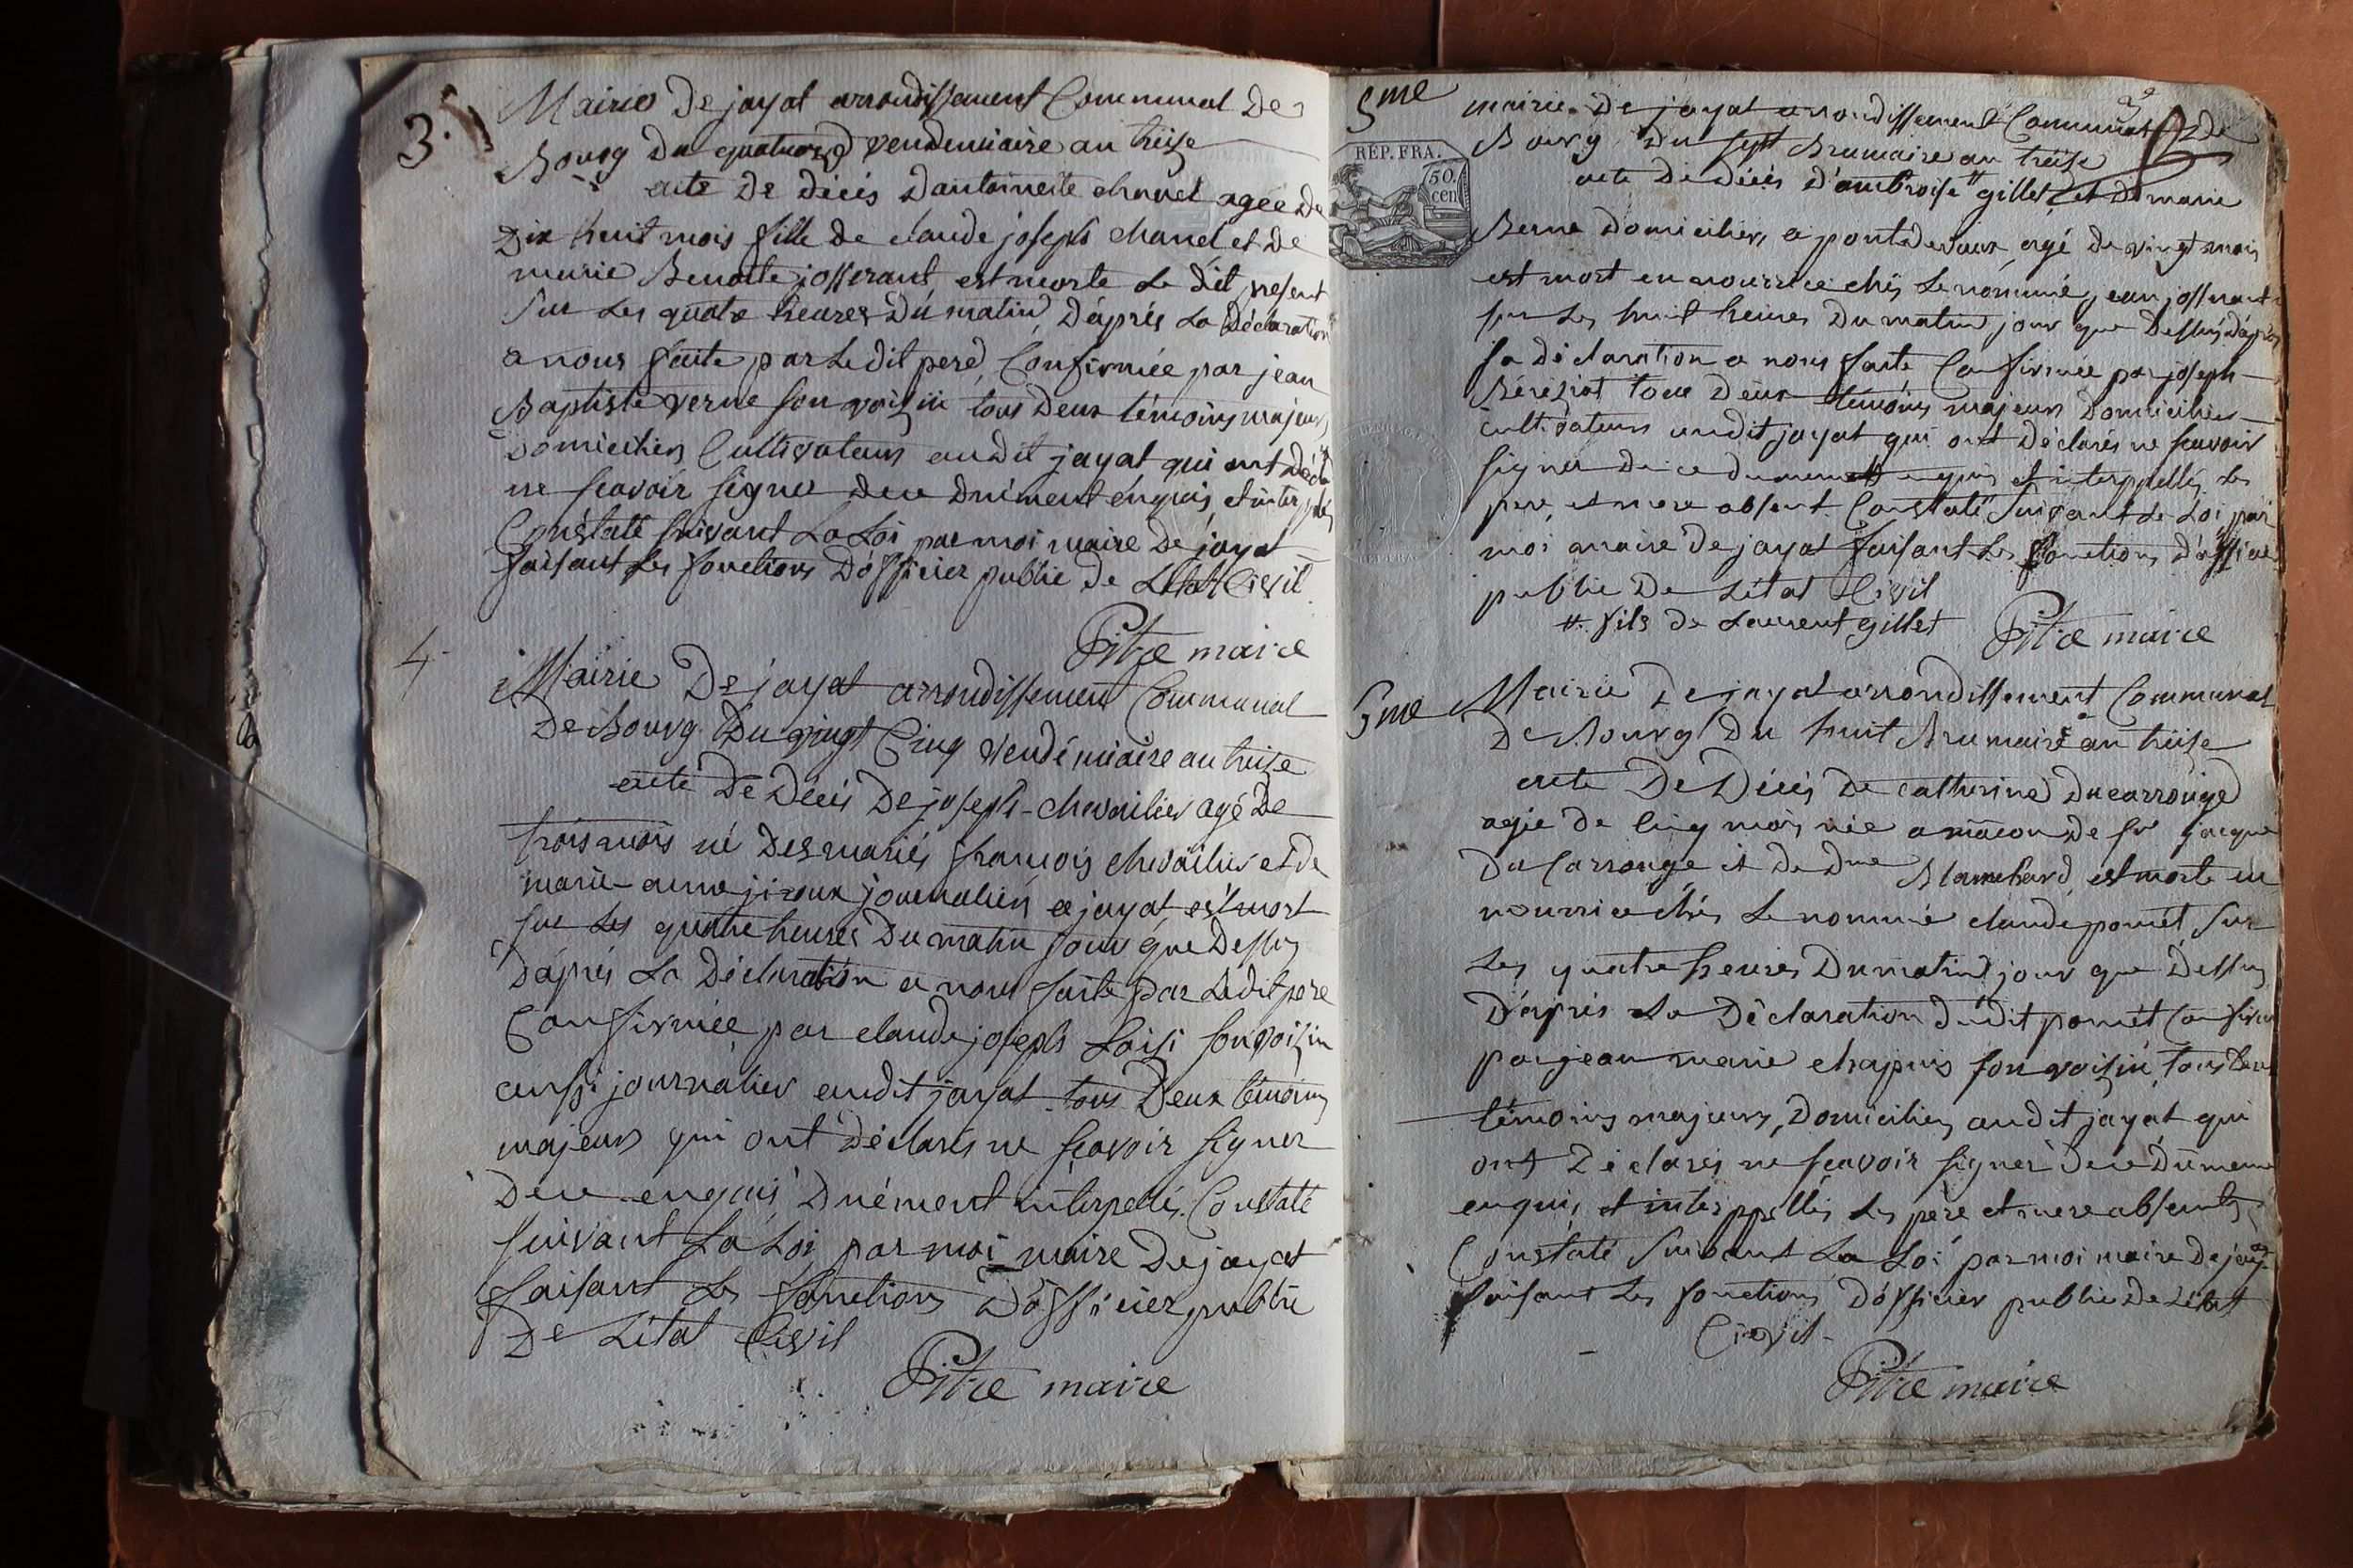 3.
Mairie De jayat arrondissement Communal De
Bourg Du quatorze vendemiaire an treise
acte De décés Dantoinette chanel agée de
Dix huit mois fille De claude joseph chanel et De
marie Benoite josserant est morte Le dit present
Sur Les quatre heures Du matin D'aprés La Déclaration
a nous faite par Ledit pere Confirmée par jean
Baptiste verne son voisin tous Deux témoins majeurs
Domiciliés Cultivateurs audit jayat qui ont
ne scavoir signer Dece Dument enquis et
Constaté suivant La Loi par moi maire De jayat
faisant Les fonctions D'officier public De Létat Civil
Pitre maire
4.
Mairie De jayat arrondissement Communal
De Bourg Du vingt Cinq vendémiaire an treise
acte De Décés De joseph chevailier agé De
trois mois né Des mariés francois chevailier et de
marie anne jiroux journaliers a jayat est mort
sur Les quatre heures Du matin jour que Dessus
D'aprés La Déclaration a nous faite par Ledit pere
Confirmée par claude joseph Loisi son voisin
aussi journalier audit jayat tous Deux témoins
majeurs qui ont Déclarés ne scavoir signer
Dece enquis Duément interpellés. Constaté
suivant La Loi par moi maire De jayat
faisant Les fonctions D'officier public
De Létat Civil
Pitre maire
5me
mairie De jayat arrondissement Communal De
Bourg Du sept Brumaire an treise
RÉP. FRA.
50.
cen
acte De décés D'ambroise # gillet et De marie
Berne Domiciliés a pontdevaux agé De vingt mois
est mort en nourrice chés Le nommé jean josserant
sur Les huit heures Du matin jour que Dessus D'aprés
sa déclaration a nous faite Confirmée par joseph
Béréziat tous Deux témoins majeurs Domiciliés
cultivateurs audit jayat qui ont Déclarés ne scavoir
signer Dece Dument enquis et interppellés Les
pere et mere absent Constaté Suivant La Loi par
moi maire De jayat faisant Les fonctions D'officier
public De Létat Civil
# fils de Laurent gillet
Pitre maire
5me
Mairie De jayat arrondissement Communal
De Bourg Du huit Brumaire an treise
acte De Décés De catherine Ducarrouge
agée De Cinq mois née a macon De sr jacque
Du Carrouge et De Dme Blanchard est morte en
nourrice chés Le nommé claude pomet Sur
Les quatre heures Du matin jour que Dessus
D'aprés La Déclaration Dudit pomet
par jean marie chapuis son voisin tous
témoins majeurs Domiciliés audit jayat qui
ont Déclarés ne scavoir signer Dece
enquis et interppellés Les pere et mere absents
Constaté Suivant La Loi par moi maire De
faisant Les fonctions D'officier public De Létat
Civil
Pitre maire